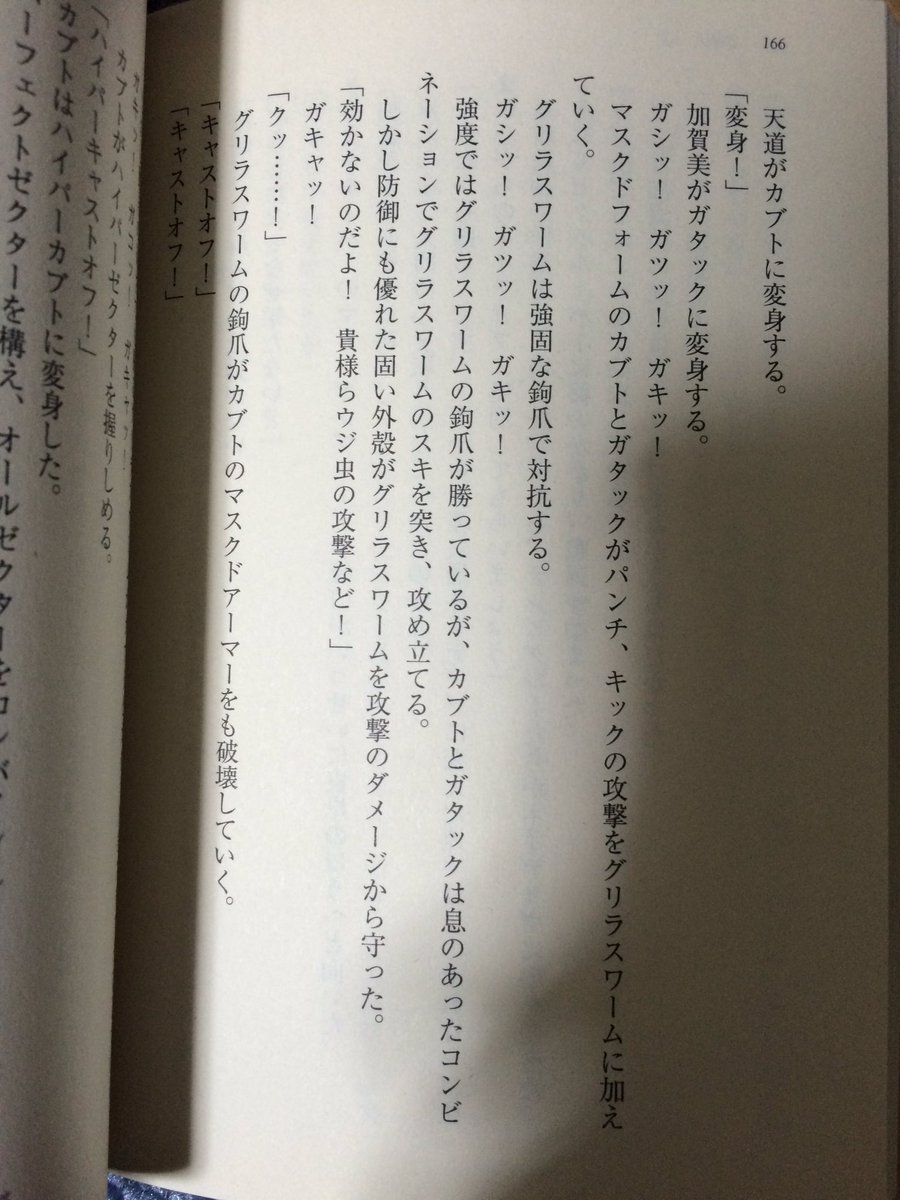 166
天道がカブトに変身する。
「変身！」
加賀美がガタックに変身する。
ガシッ！　ガツッ！　ガキッ！
マスクドフォームのカブトとガタックがパンチ、キックの攻撃をグリラスワームに加え
ていく。
グリラスワームは強固な鉤爪で対抗する。
ガシッ！　ガツッ！　ガキッ！
強度ではグリラスワームの鉤爪が勝っているが、カブトとガタックは息のあったコンビ
ネーションでグリラスワームのスキを突き、攻め立てる。
しかし防御にも優れた固い外殻がグリラスワームを攻撃のダメージから守った。
「効かないのだよ！　貴様らウジ虫の攻撃など！」
ガキャッ！
「クッ……！」
グリラスワームの鉤爪がカブトのマスクドアーマーをも破壊していく。
「キャストオフ！」
「キャストオフ！」
カブトがハイパーゼクターを握りしめる。
「ハイパーキャストオフ！」
カブトはハイパーカブトに変身した。
ーフェクトゼクターを構え、オールゼクターをコンバ